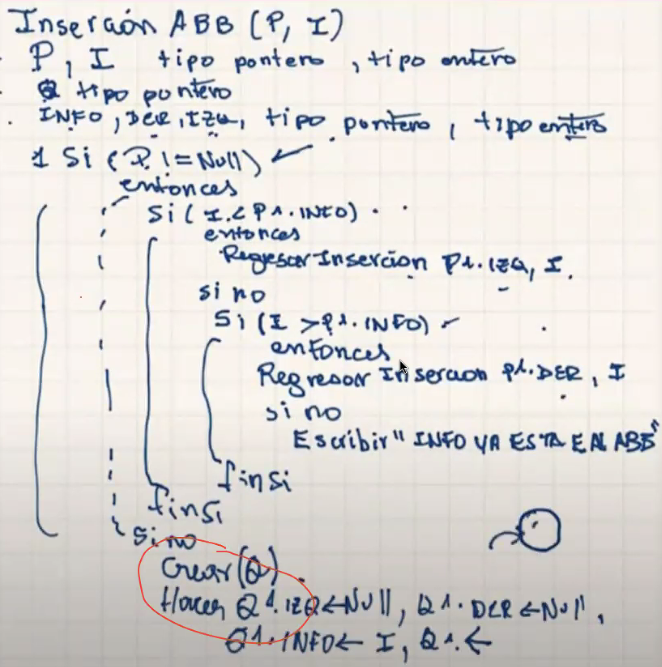 Inserción ABB (P, I)
P, I tipo pontero, tipo entero
Q tipo puntero
INFO, DER, IZQ, tipo pontero, tipo entero
1 Si (P != Null)
entonces
Si (I < P↑.INFO)
entonces
Regresar Insercion P↑.IZQ, I.
si no
Si (I > P↑.INFO)
entonces
Regresar Insercion P↑.DER, I
si no
Escribir "INFO YA ESTA E AL ABB"
finsi
finsi
sino
Crear (Q).
Hacer Q↑.IZQ ← Null, Q↑.DER ← Null,
Q↑.INFO ← I, Q↑. ←